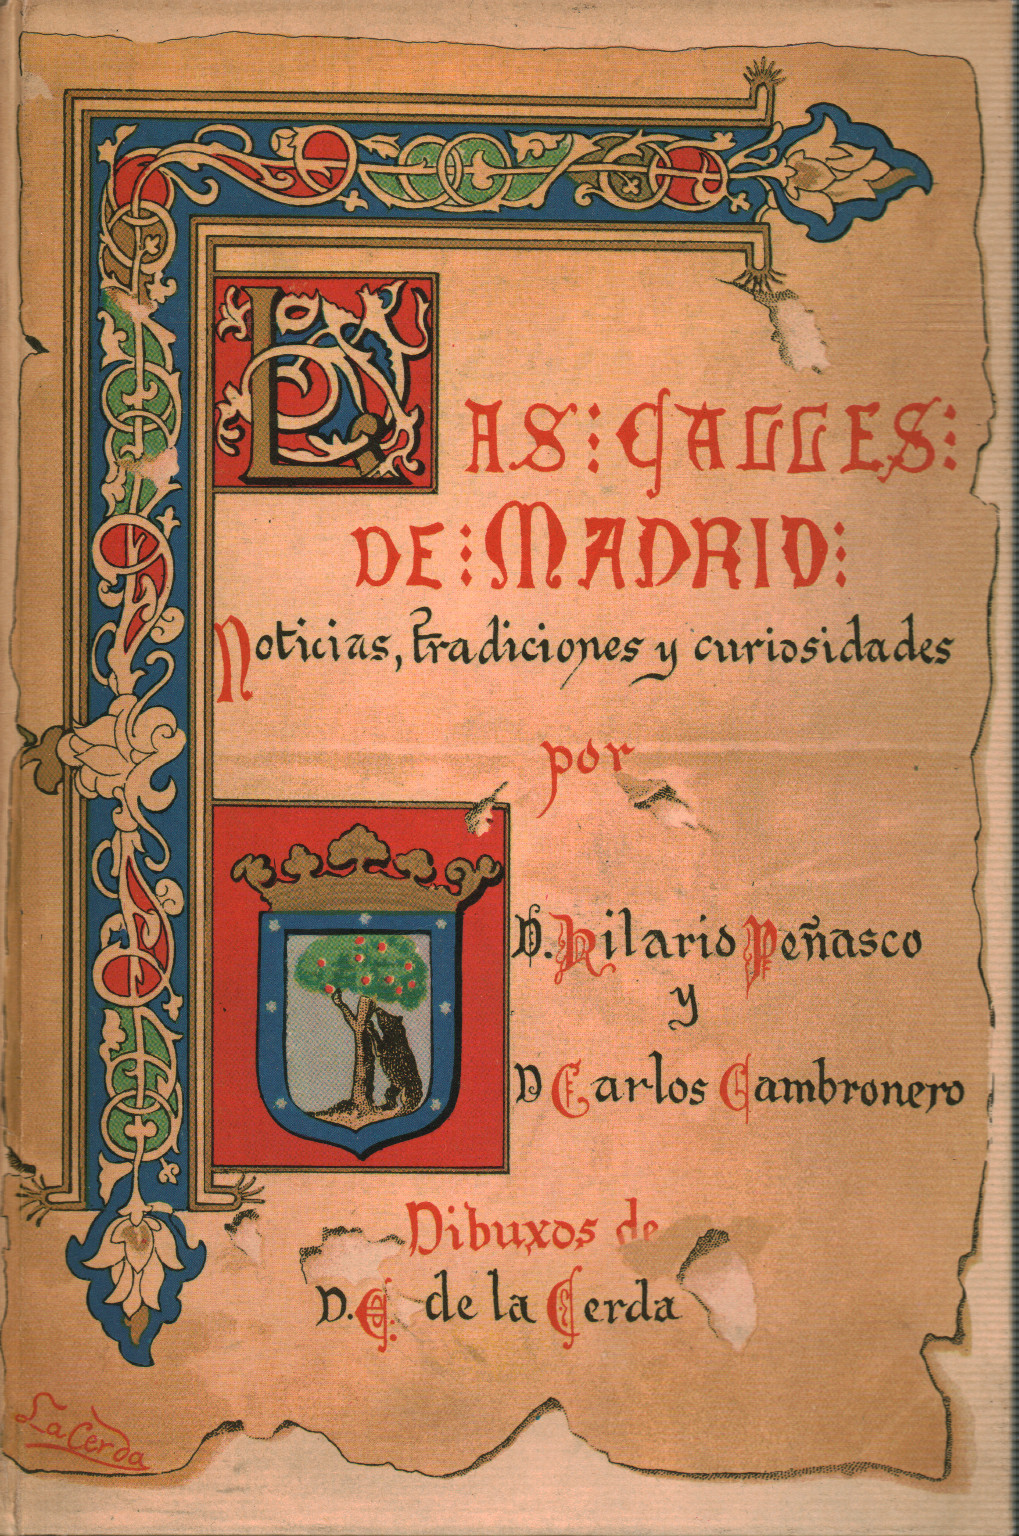 LAS: CALLES:
DE: MADRID:
Noticias, tradiciones y curiosidades
por
D. Hilario Peñasco
y
D Carlos Cambronero
Dibuxos de
D. E. de la Cerda
La Cerda